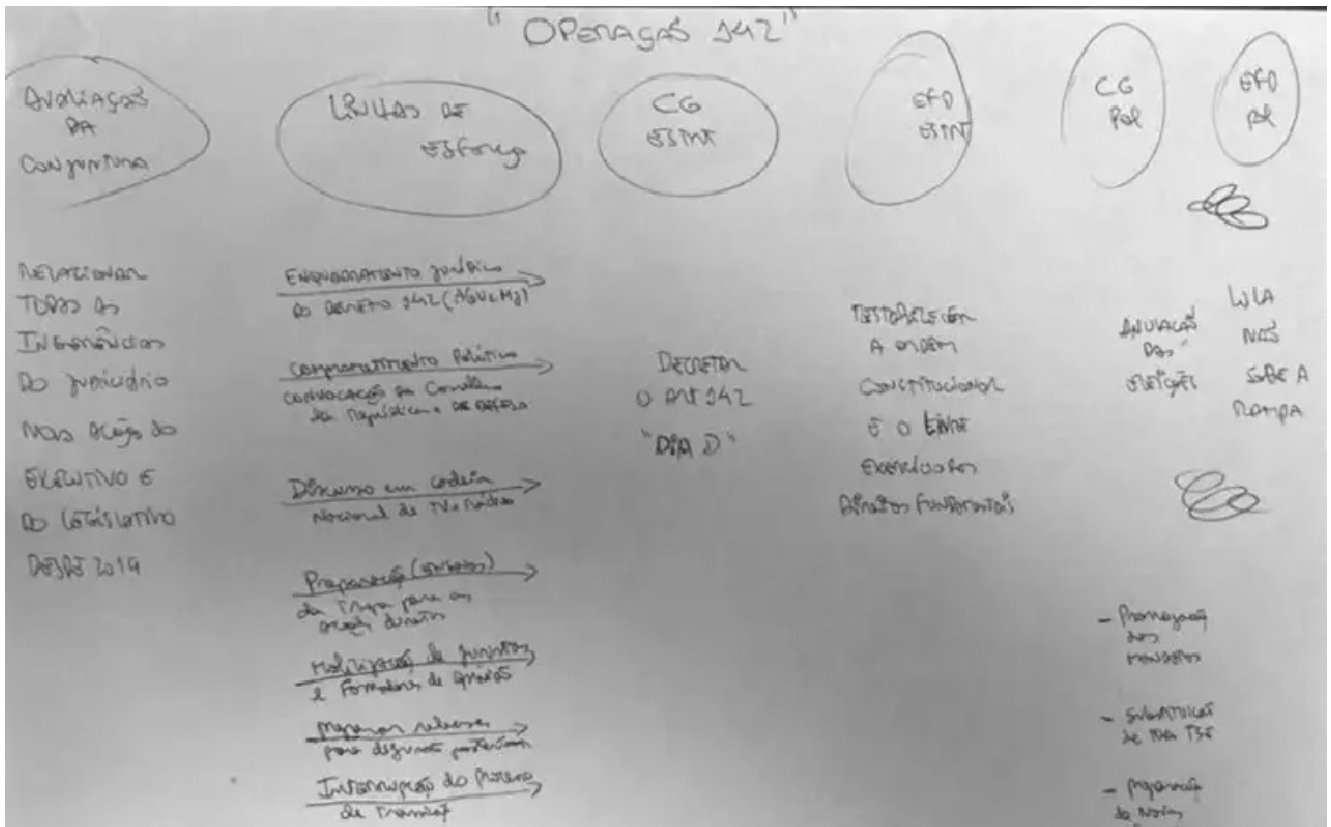 "OPERAÇÃO 142"
AVALIAÇÃO
DA
CONJUNTURA
LINHAS DE
ESFORÇO
CG
ESTRT
EFD
ESTRT
CG
POL
EFD
POL
RELACIONAR
TODAS AS
INGERÊNCIAS
DO JUDICIÁRIO
NAS AÇÕES DO
EXECUTIVO E
DO LEGISLATIVO
DESDE 2019
ENQUADRAMENTO JURÍDICO
DO DECRETO 142 (AGU e MJ)
COMPROMETIMENTO POLÍTICO
CONVOCAÇÃO DO Conselho
da República e DE DEFESA
Discurso em cadeia
Nacional de TV e Rádio
Preparação
da Tropa para as
ações diretas
Mobilização de juristas
e Formadores de opinião
preparar
para
Interrupção do Processo
de Transição
DECRETAR
O ART 142
"DIA D"
RESTABELECER
A ORDEM
CONSTITUCIONAL
E O LIVRE
EXERCÍCIO DOS
DIREITOS FUNDAMENTAIS
ANULAÇÃO
DAS
ELEIÇÕES
- Prorrogação
dos
MANDATOS
- SUBSTITUIÇÃO
DE TODO TSE
- preparação
de Novas
LULA
NÃO
SOBE A
RAMPA